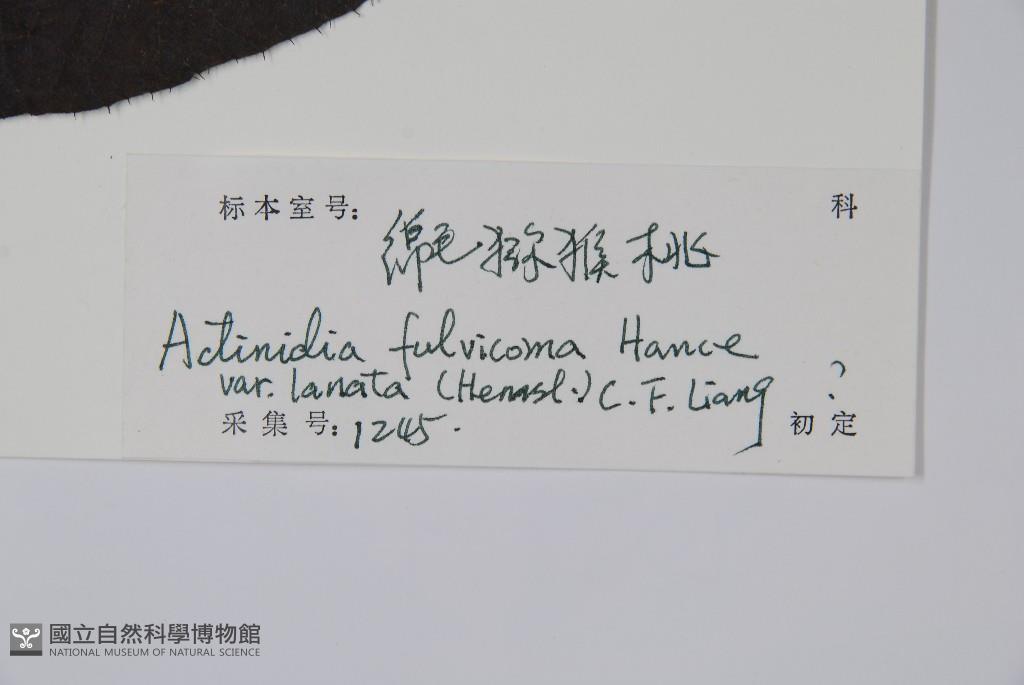 标本室号: 科
绵毛猕猴桃
Actinidia fulvicoma Hance
var. lanata (Hemsl.) C. F. Liang ?
采集号: 1245. 初定
國立自然科學博物館
NATIONAL MUSEUM OF NATURAL SCIENCE